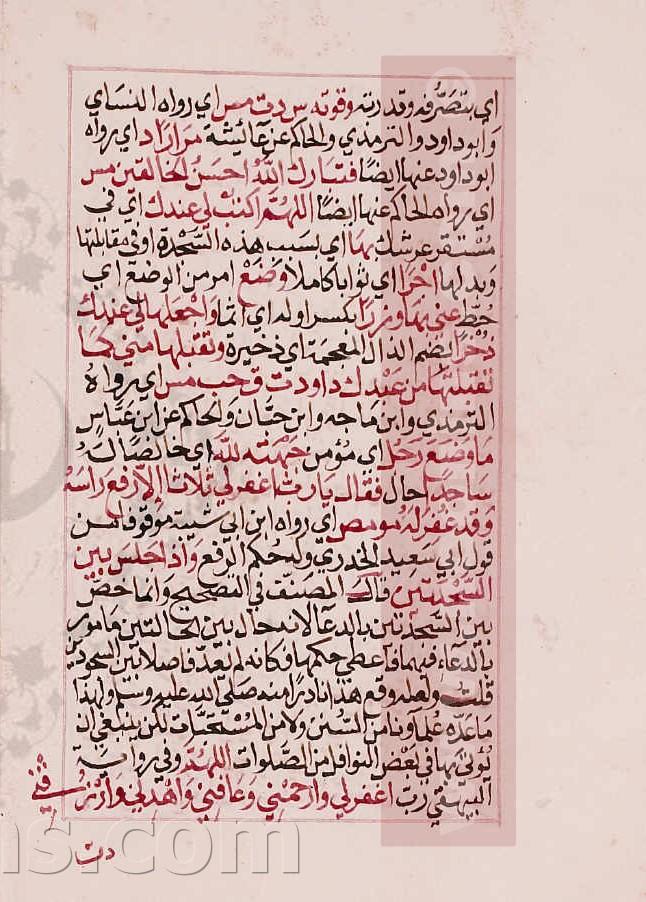 اي بتصرفه وقدرته وقوته س د ت مس اي رواه النساي
وابوداود والترمذي والحاكم عن عائيشة مرارا د اي رواه
ابوداود عنها ايضا فتبارك الله احسن الخالقين مس
اي رواه الحاكم عنها ايضا اللهم اكتب لي عندك اي في
مستقر عرشك بها اي بسبب هذه السجدة او في مقابلتها
وبدلها اجرا اي ثوابا كاملا وضع امر من الوضع اي
حط عني بها وزرا بكسر اوله اي اثما واجعلها لي عندك
ذخرا بضم الذال المعجمة اي ذخيرة وتقبلها مني كما
تقبلتها من عبدك داود ت ق حب مس اي رواه
الترمذي وابن ماجه وابن حبان والحاكم عن ابن عباس
ما وضع رجل اي مؤمن جبهته لله اي خالصا له
ساجدا حال فقال يا رب اغفر لي ثلاثا الا رفع راسه
وقد غفر له مو مص اي رواه ابن ابي شيبة موقوفا من
قول ابي سعيد الخدري وله حكم الرفع واذا جلس بين
السجدتين قال المصنف في التصحيح وانما خص
بين السجدتين بالدعا لانه حال بين الحالتين مامور
بالدعاء فيهما فاعطي حكمها وكانه لم يعد فاصلا بين السجودين
قلت ولعله وقع هذا نادرا منه صلى الله عليه وسلم ولهذا
ما عده علماونا من السنن ولا من المستحبات لكن ينبغي ان
يؤتى بها في بعض النوافل من الصلوات اللهم وفي رواية
البيهقي رب اغفر لي وارحمني وعافني واهدني وارزقني
د ت
ns.com